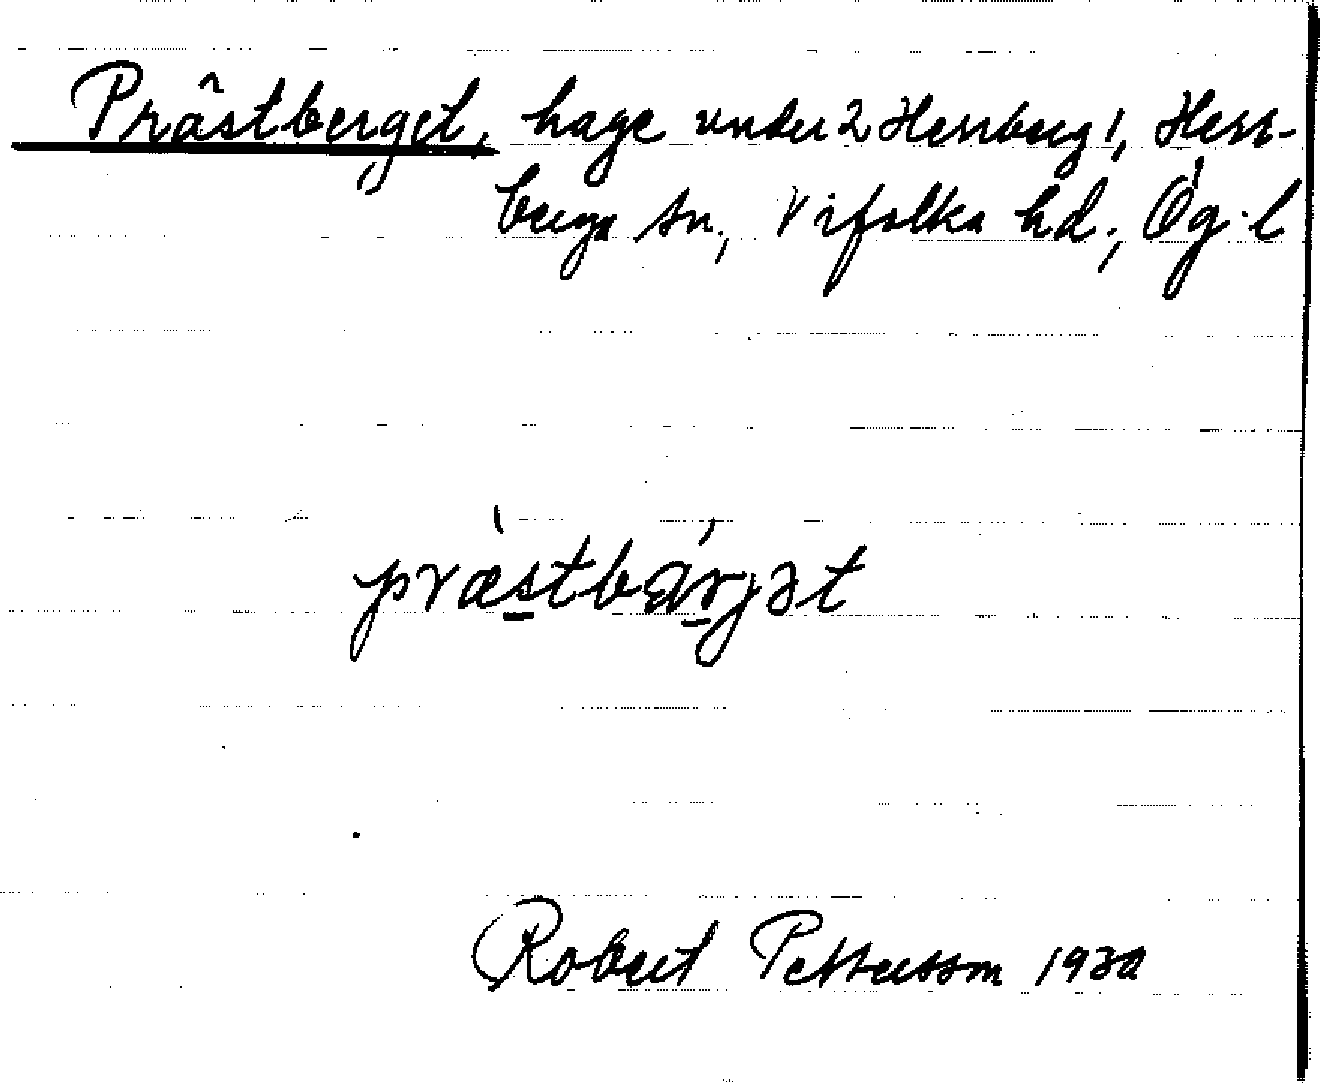 Prästberget, hage under 2 Herrberg!, Herr-
berga sn, Vifolka hd, Ög. l
præstbærjət
Robert Pettersson 1930